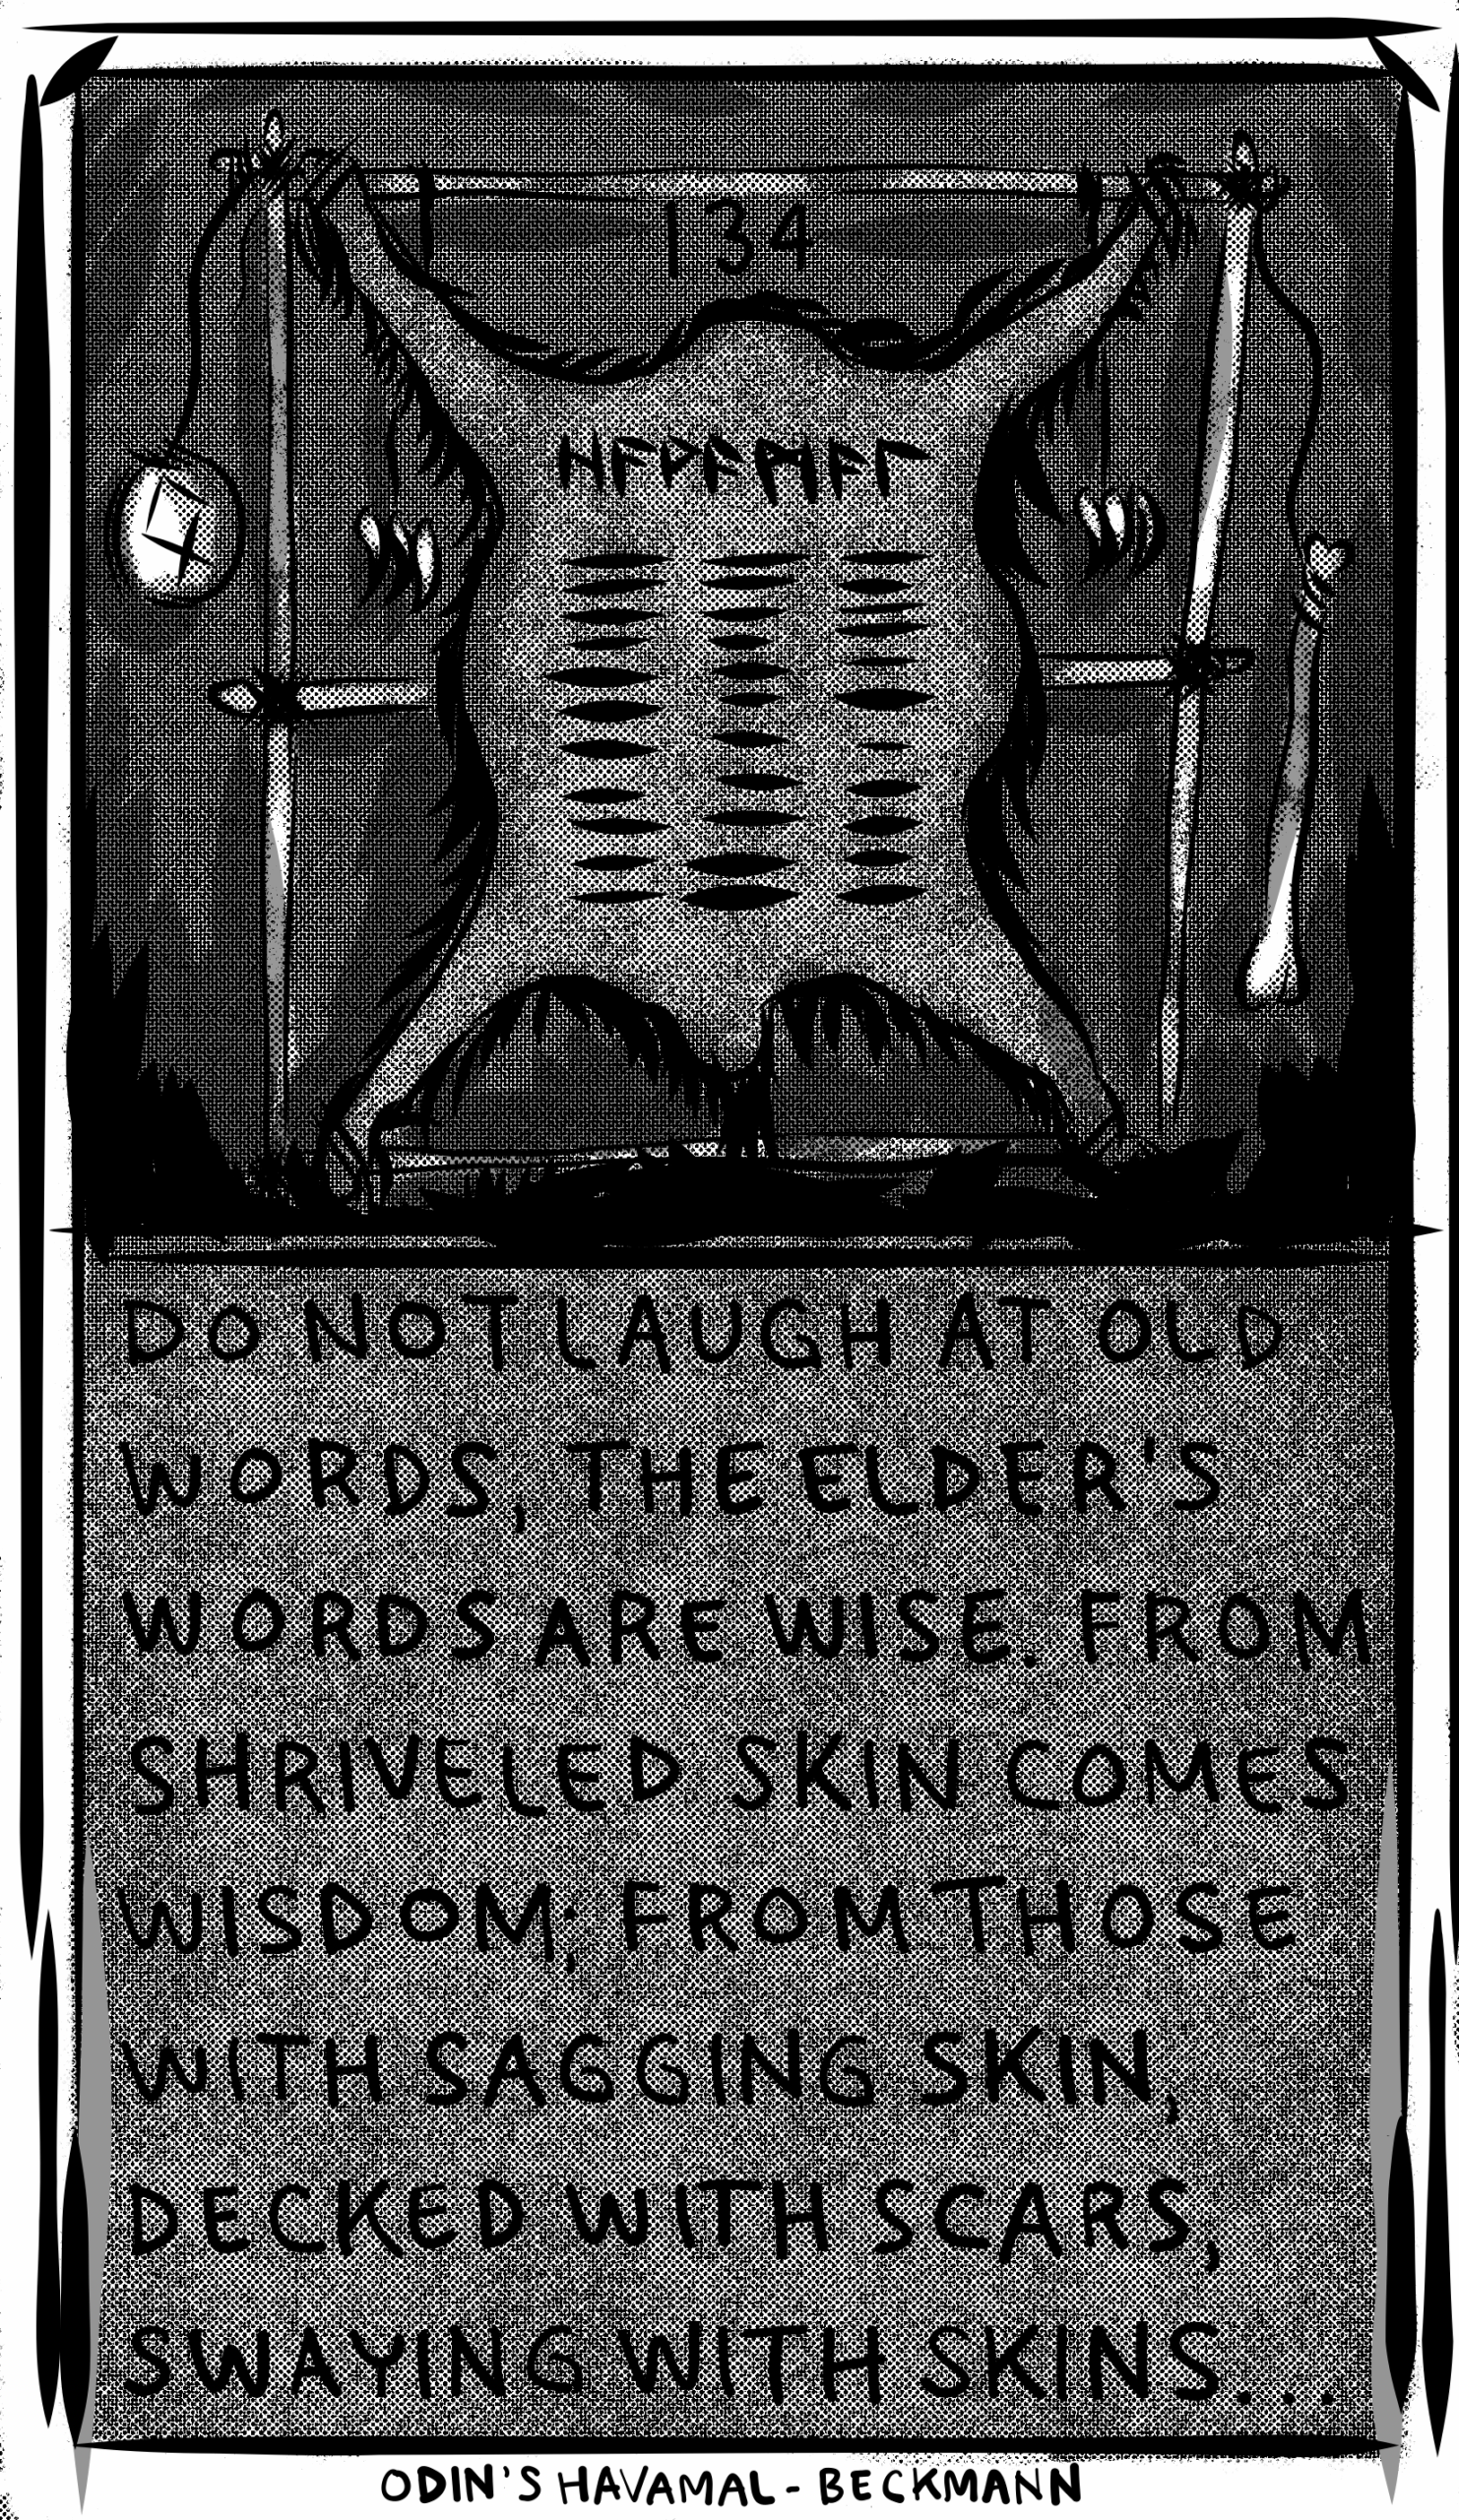 134
ᚺᚨᚹᚨᛗᚨᛚ
DO NOT LAUGH AT OLD
WORDS, THE ELDER'S
WORDS ARE WISE. FROM
SHRIVELED SKIN COMES
WISDOM; FROM THOSE
WITH SAGGING SKIN,
DECKED WITH SCARS,
SWAYING WITH SKINS...
ODIN'S HAVAMAL - BECKMANN